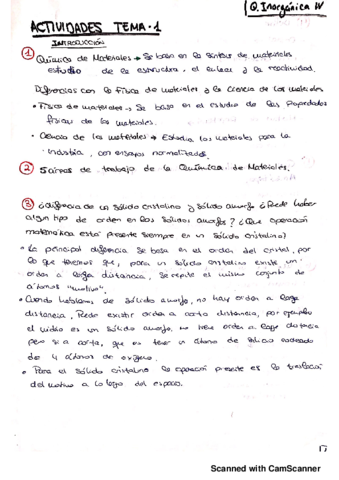 Q. Inorgánica IV
ACTIVIDADES TEMA·1
INTRODUCCIÓN
① Química de Materiales → Se basa en la síntesis de materiales
estudio de la estructura, el enlace y la reactividad.
Diferencias con la Física de Materiales y la Ciencia de los materiales
• Física de materiales → Se basa en el estudio de las Propiedades
físicas de los materiales.
• Ciencia de los materiales → Estudia los materiales para la
industria, con ensayos normalizados.
② 5 años de trabajo de la Química de Materiales.
③ ¿diferencia de un Sólido cristalino y Sólido amorfo ¿Puede haber
algún tipo de orden en los sólidos amorfos? ¿Que operación
matemática está presente siempre en un sólido cristalino?
• La principal diferencia se basa en el orden del cristal, por
lo que tenemos que, para un sólido cristalino existe un
orden a larga distancia, se repite el mismo conjunto de
átomos "motivo".
• Cuando hablamos de sólido amorfo, no hay orden a larga
distancia, Puede existir orden a corta distancia, por ejemplo
el vidrio es un sólido amorfo, no tiene orden a larga distancia
pero si a corta, que es tener un átomo de silicio rodeado
de 4 átomos de oxígeno.
• Para el sólido cristalino la operación presente es la traslación
del motivo a lo largo del espacio.
Scanned with CamScanner